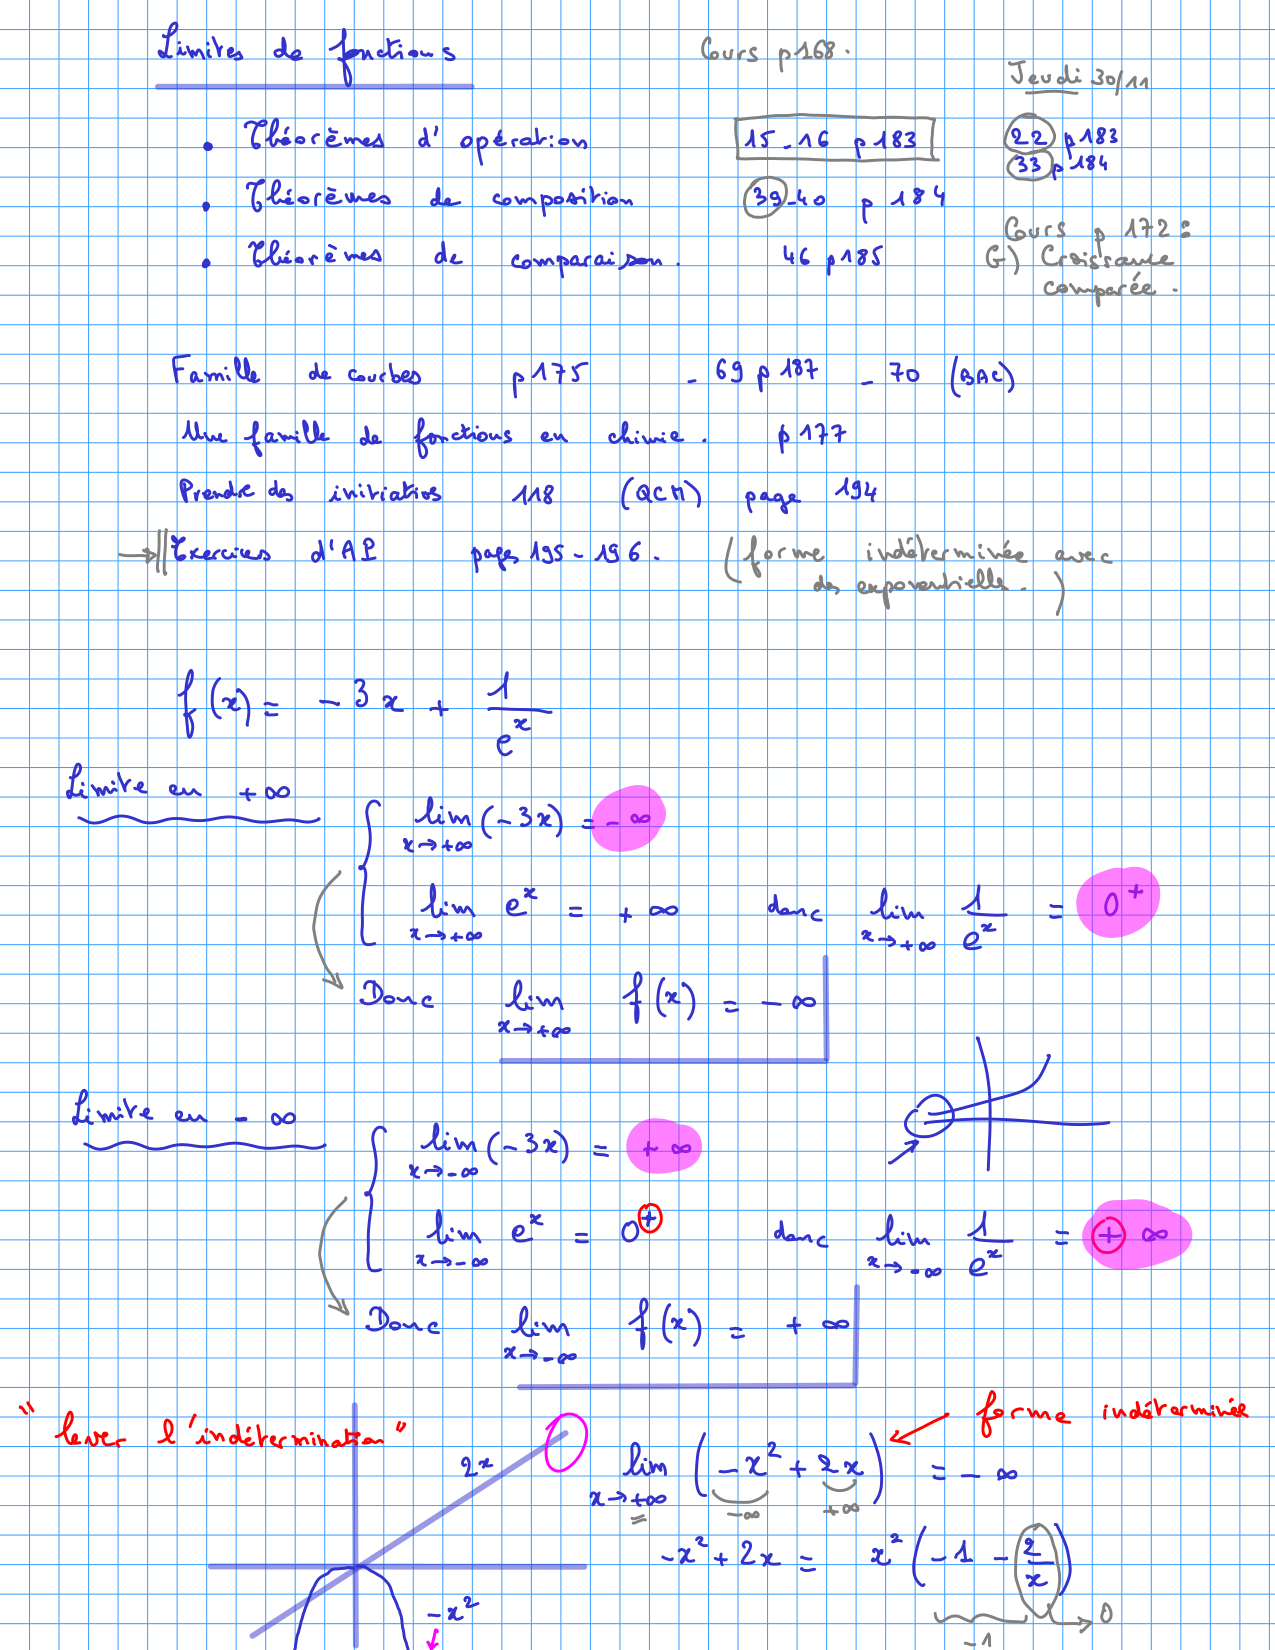 Limites de fonctions
Cours p168.
Jeudi 30/11
• Théorèmes d'opération 15-16 p183 22 p183
33 p184
• Théorèmes de composition 39-40 p 184
Cours p 172 :
• Théorèmes de comparaison. 46 p185 G) Croissance
comparée.
Famille de courbes p175 - 69 p187 - 70 (BAC)
Une famille de fonctions en chimie. p177
Prendre des initiatives 118 (QCM) page 194
→ || Exercices d'AP pages 195-196. (forme indéterminée avec
des exponentielles.)
f(x) = -3x + 1/e^x
Limite en +∞
lim x→+∞ (-3x) = -∞
lim x→+∞ e^x = +∞ donc lim x→+∞ 1/e^x = 0^+
Donc lim x→+∞ f(x) = -∞
Limite en -∞
lim x→-∞ (-3x) = +∞
lim x→-∞ e^x = 0^+ donc lim x→-∞ 1/e^x = +∞
Donc lim x→-∞ f(x) = +∞
forme indéterminée
"lever l'indétermination"
2x
lim x→+∞ (-x² + 2x) = -∞
-∞ +∞
-x² + 2x = x² (-1 - 2/x)
-x²
→ 0
-1